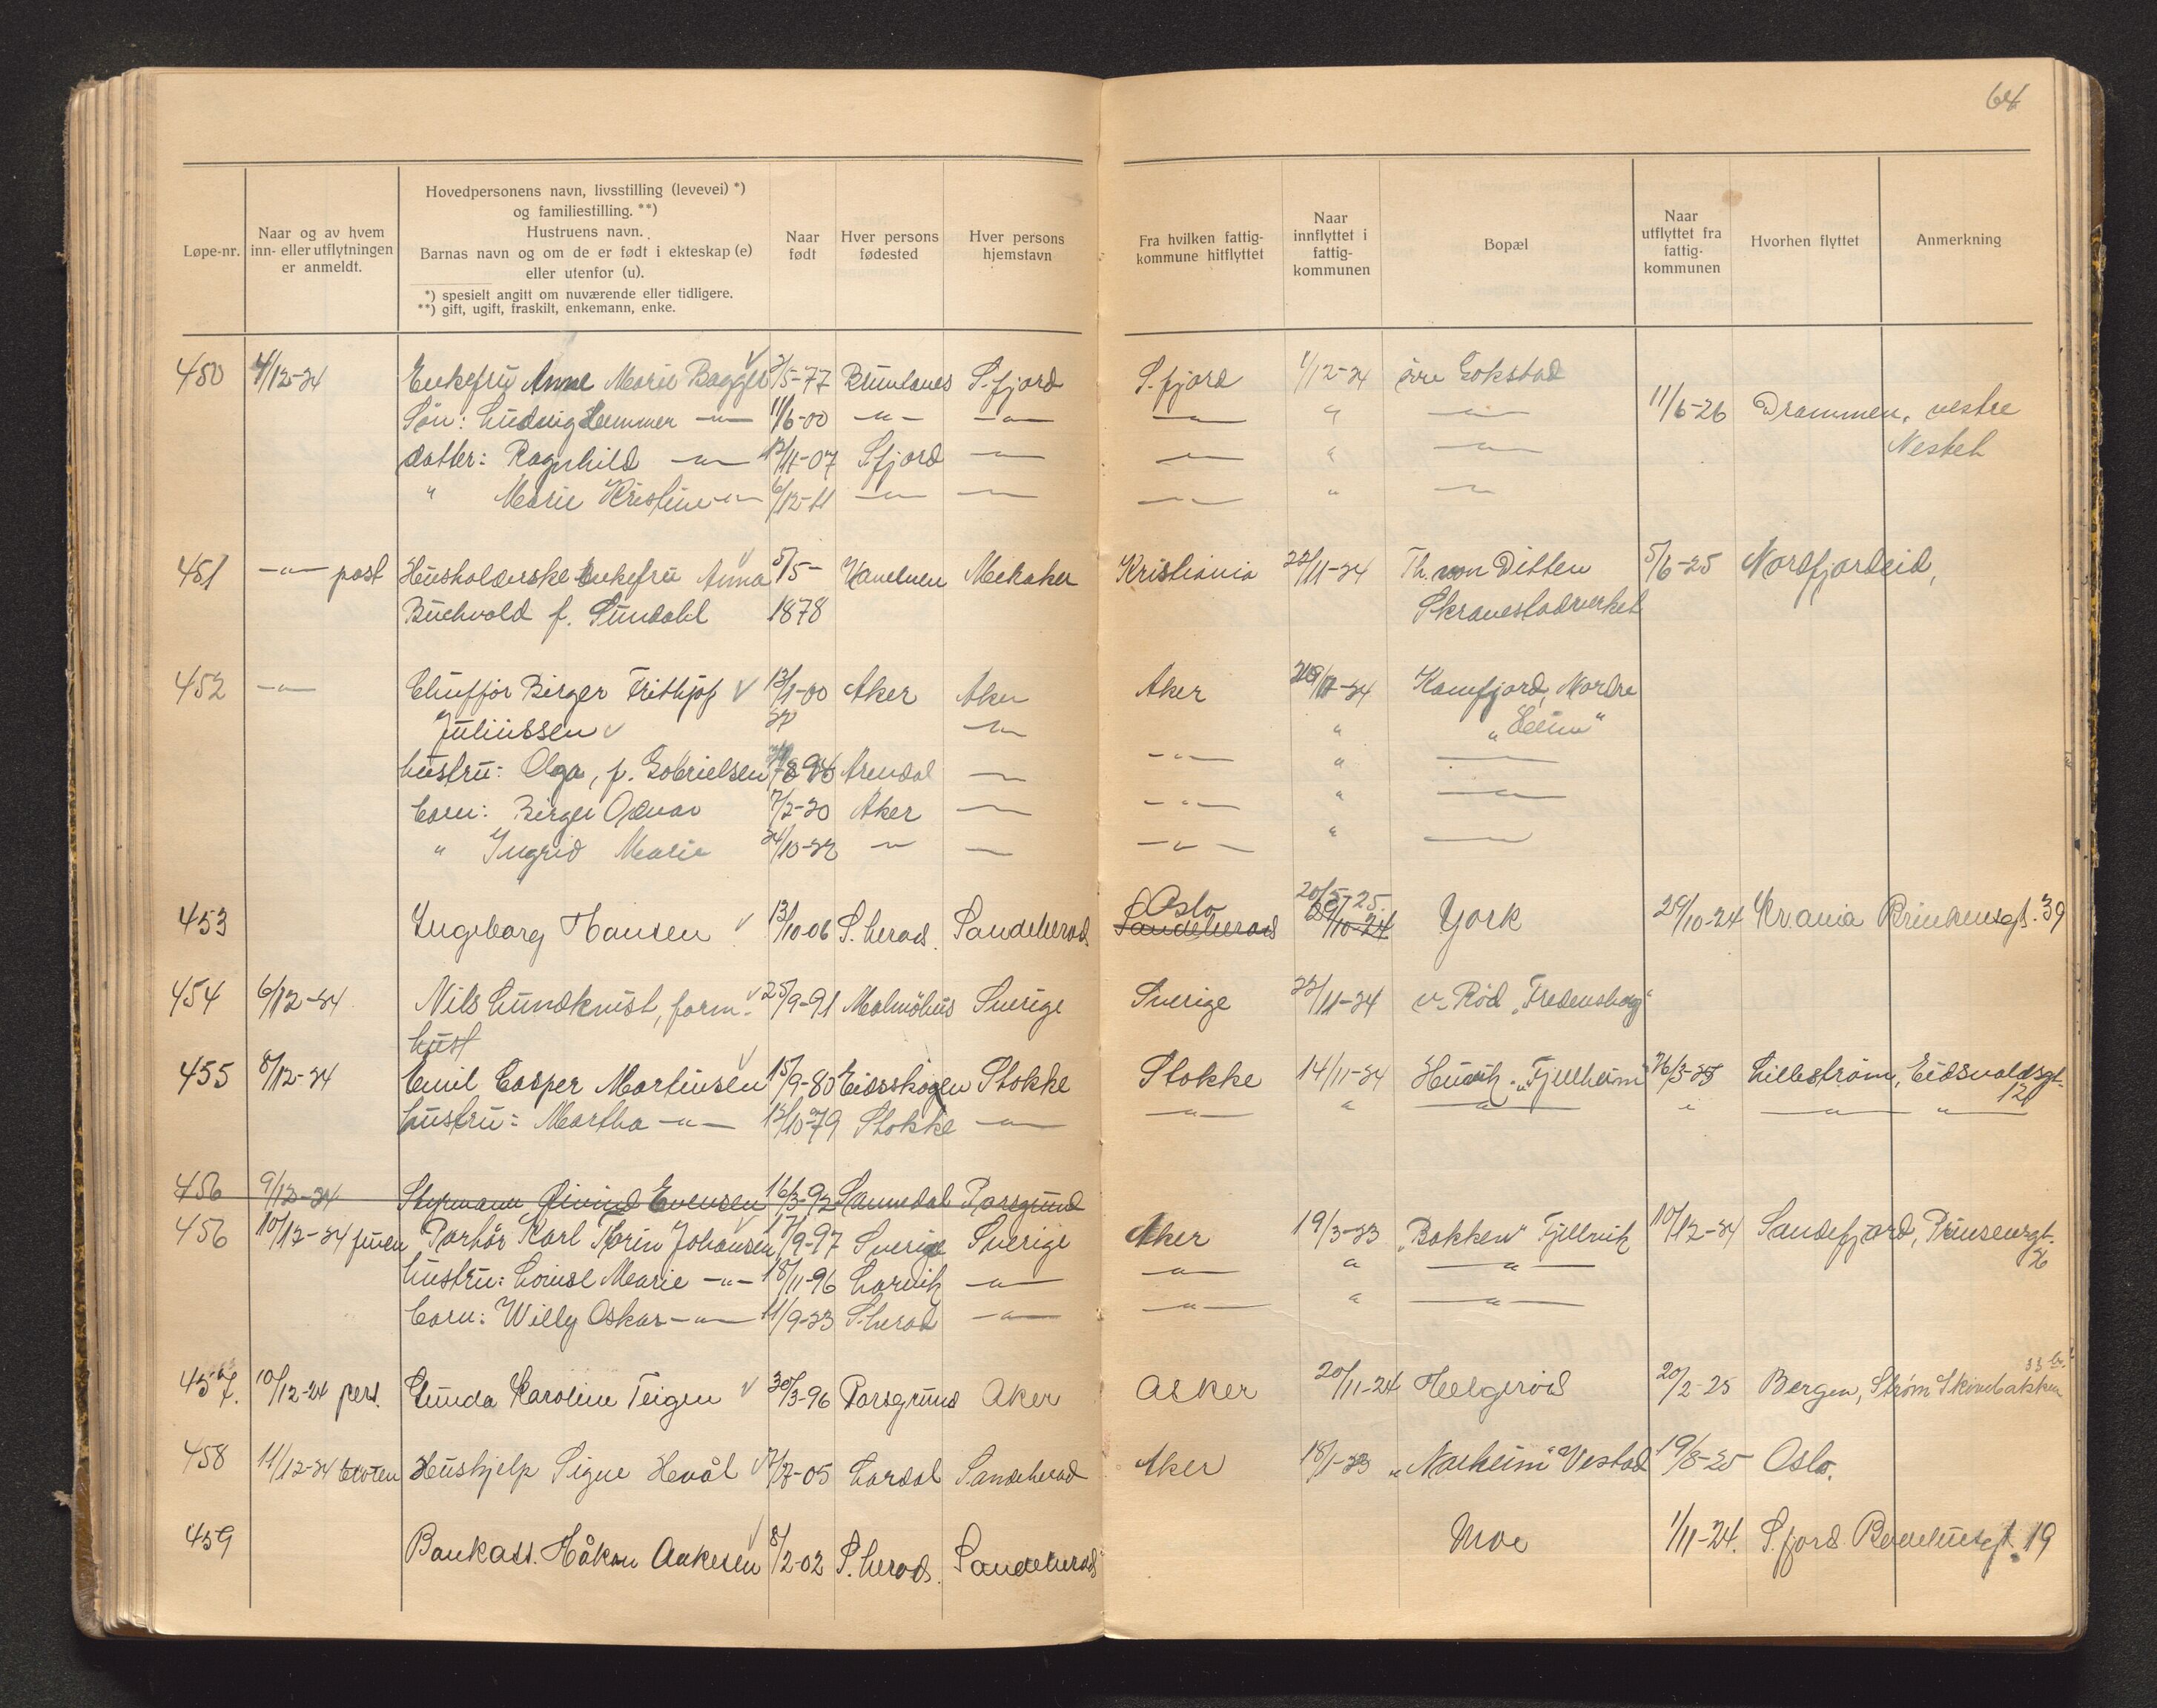 64
Løpe-nr.
Naar og av hvem
inn- eller utflytningen
er anmeldt.
Hovedpersonens navn, livsstilling (levevei) *)
og familiestilling. **)
Hustruens navn.
Barnas navn og om de er født i ekteskap (e)
eller utenfor (u).
*) spesielt angitt om nuværende eller tidligere.
**) gift, ugift, fraskilt, enkemann, enke.
Naar
født
Hver persons
fødested
Hver persons
hjemstavn
Fra hvilken fattig-
kommune hitflyttet
Naar
innflyttet i
fattig-
kommunen
Bopæl
Naar
utflyttet fra
fattig-
kommunen
Hvorhen flyttet
Anmerkning
450 4/12-24 Enkefru Anne Marie Bagger 2/5-77 Brunlanes S.fjord S.fjord 1/12-24 övre Gokstad
Sön: Ludvig Hemmer -"- 11/6-00 -"- -"- -"- " -"- 11/6-26 Drammen, vestre
datter: Ragnhild -"- 12/11-07 S.fjord -"- -"- " -"- Nesteb
" Marie Kristine -"- 6/12-11 -"- -"- -"- " -"-
451 -"- post Husholderske Enkefru Anna 5/5- Meraker Kristiania 22/11-24 Th. von Ditten 5/6-25 Nordfjordeid,
Buchvold f. Sundahl 1878 Skranestadverket
452 -"- Chufför Birger Frithjof 13/1-00 Aker Aker Aker Kamfjord, Nordre
Juliussen -"- " "Heim"
hustru: Olga, f. Gabrielsen Arendal -"- -"- " -"-
barn: Birger Odvar 7/2-20 Aker -"- -"- " -"-
" Ingrid Marie 24/10-22 -"- -"- -"- " -"-
20/5-25.
Oslo
453 Ingeborg Hansen 13/10-06 S.herad. Sandeherad Sandeherad 29/10-24 York 29/10-24 Kr.ania Brinkensgt. 39
454 6/12-24 Nils Lundkvist, form. 25/9-91 Malmöhus Sverige Sverige 22/11-24 v. Röd "Fredensborg"
hust
455 8/12-24 Emil Casper Martinsen 15/9-80 Eidsskogen Stokke Stokke 14/11-24 Huvik. "Fjellheim" 26/3-25 Lilleström, Eidsvoldsgt.
12
hustru: Martha -"- 12/10-79 Stokke -"- -"- " -"- " -"- "
456 9/12-24 Styrmann Öivind Evensen 16/3-92 Sannidal Porsgrund
456 10/12-24 Karl Johansen 17/9-97 Sverige Sverige Aker 19/3-23 "Bakken" Fjellvik 10/12-24 Sandefjord, Prinsensgt.
hustru: Louise Marie -"- 18/11-96 Larvik -"- -"- " -"-
barn: Willy Oskar -"- 11/9-23 S.herad -"- -"- " -"-
457. 10/12-24 pers. Gunda Karoline Teigen 30/3-96 Porsgrund Aker Asker 20/11-24 Helgeröd 20/2-25 Bergen, Ström Skivebakken
458 11/12-24 Hushjelp Signe Hevål Lardal Sandeherad Aker 18/1-23 "Norheim" Vestad 19/8-25 Oslo.
459 Bankass. Håkon Aakesen 8/2-02 S.herad. Sandeherad Moe 1/11-24. S.fjord. 19